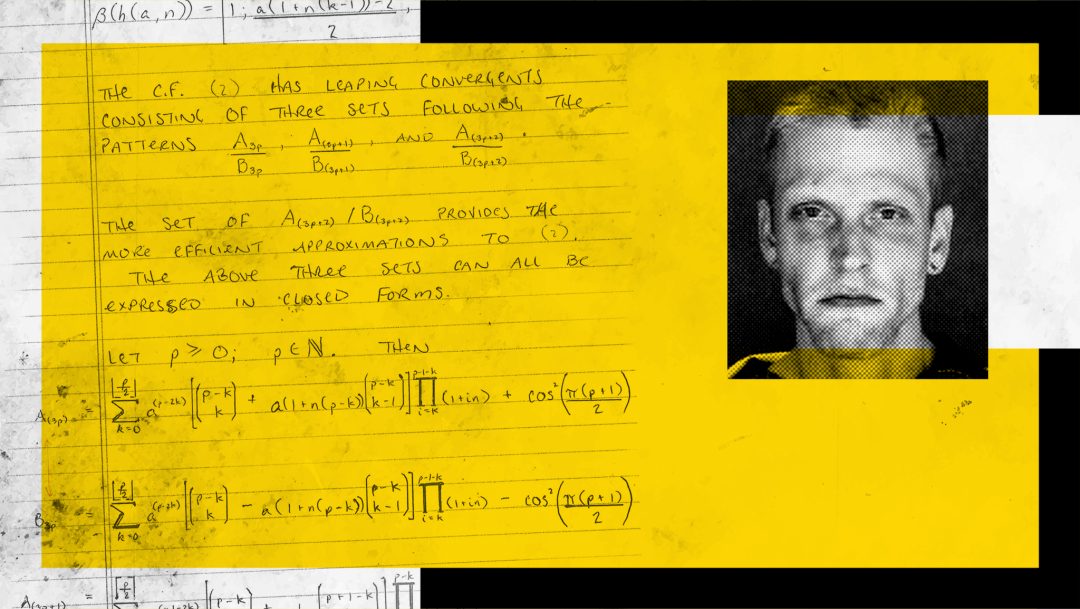 β(h(a,n)) = [1; a(1+n(k-1))-2 / 2,
THE C.F. (2) HAS LEAPING CONVERGENTS
CONSISTING OF THREE SETS FOLLOWING THE
PATTERNS A_{3p}/B_{3p}, A_{(3p+1)}/B_{(3p+1)}, AND A_{(3p+2)}/B_{(3p+2)}.
THE SET OF A_{(3p+2)}/B_{(3p+2)} PROVIDES THE
MORE EFFICIENT APPROXIMATIONS TO (2).
THE ABOVE THREE SETS CAN ALL BE
EXPRESSED IN CLOSED FORMS.
LET p ≥ 0; p ∈ ℕ. THEN
A_{(3p)} = ∑_{k=0}^{⌊p/2⌋} a^{(p-2k)} [(p-k choose k) + a(1+n(p-k))(p-k choose k-1)] ∏_{i=k}^{p-1-k} (1+in) + cos²(π(p+1)/2)
B_{3p} = ∑_{k=0}^{⌊p/2⌋} a^{(p-2k)} [(p-k choose k) - a(1+n(p-k))(p-k choose k-1)] ∏_{i=k}^{p-1-k} (1+in) - cos²(π(p+1)/2)
A_{(3p+1)} =